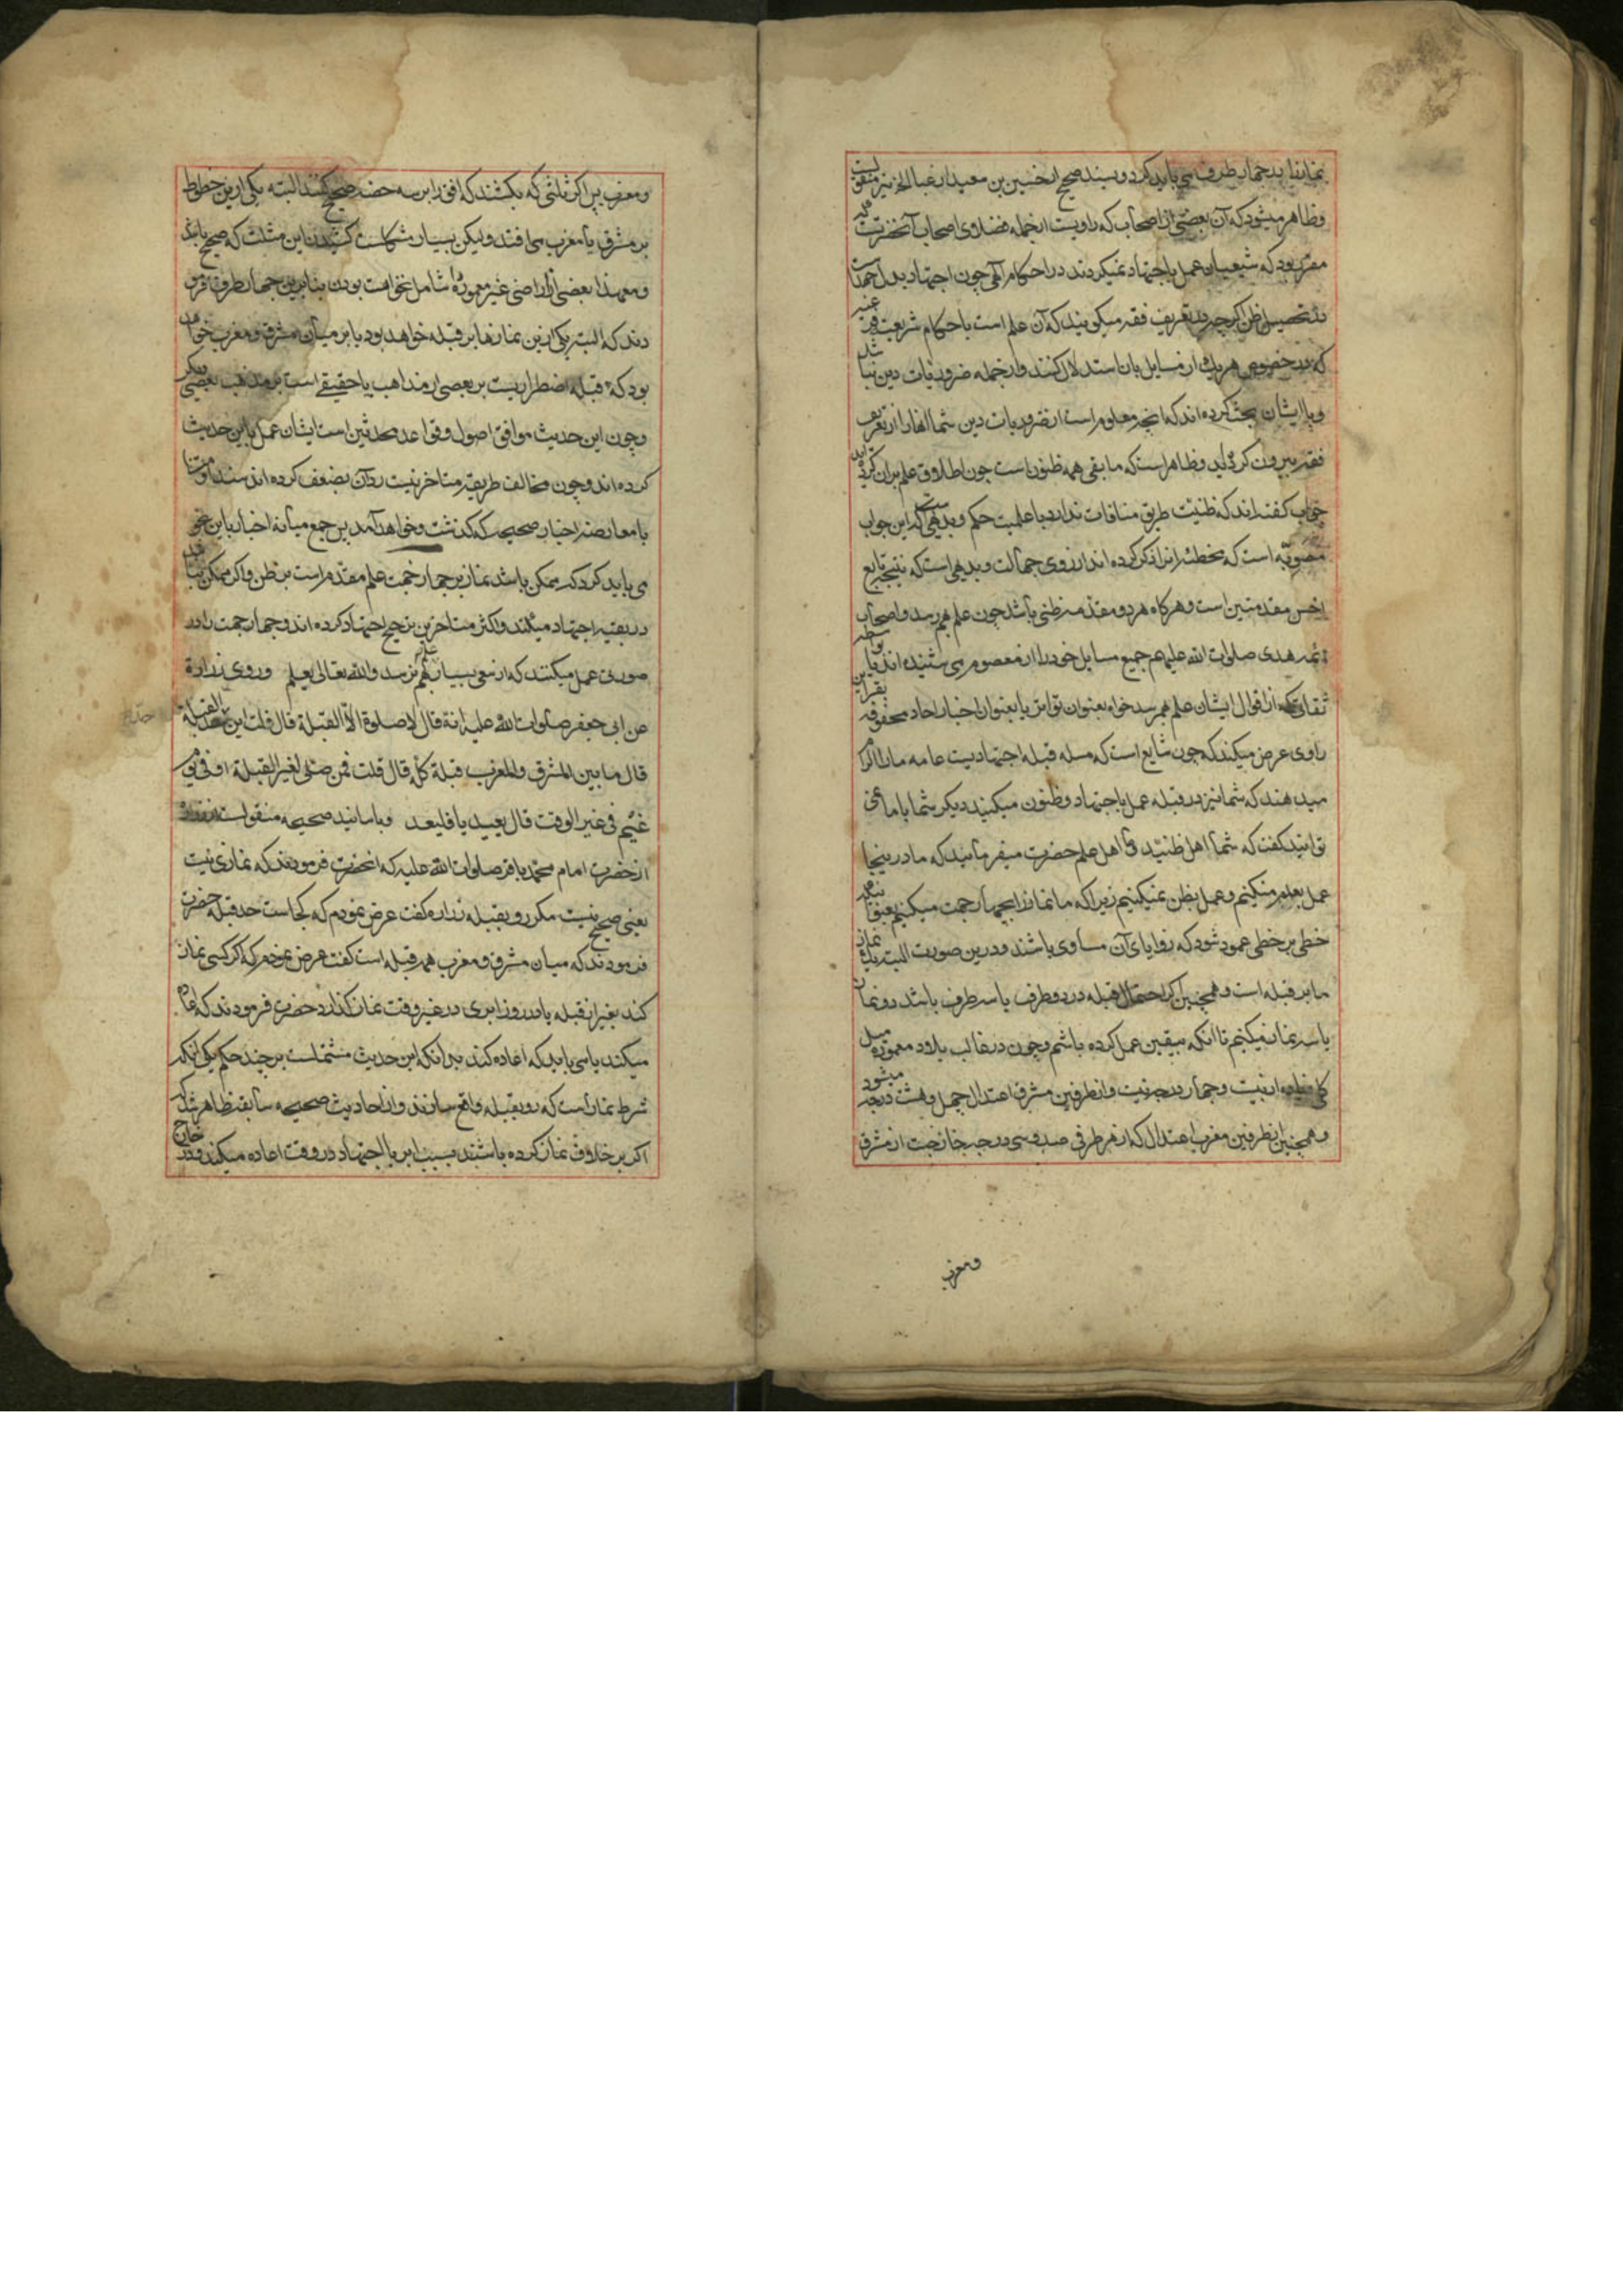 نمازها بچهار طرف می باید کرد و بسند صحیح از حسین بن سعید از عبد العزیز منقولست
و ظاهر میشود که آن بعضی از اصحاب که راویست از جمله فضلای اصحاب آنحضرت
مقرر بود که شیعیان عمل باجتهاد نمیکردند در احکام الهی چون اجتهاد
تحصیل ظن اگر چه در تعریف فقه میکویند که آن علم است باحکام شریعت
که در خصوص هر یک از مسایل بان استدلال کنند و از جمله ضروریات دین نباشد
و با ایشان بحث کرده اند که انچه معلوم است از ضروریات دین شما انها را از تعریف
فقه بیرون کردید و ظاهر است که ما بقی همه ظنون است چون اطلاق علم بران کردید
جواب کفته اند که ظنیت طریق منافات ندارد با علمیت حکم و بدیهی است که این جواب
مصوبه است که مخطئه انرا ذکر کرده اند از روی جهالت و بدیهی است که نتیجه تابع
اخس مقدمتین است و هر کاه هر دو مقدمه ظنی باشد چون علم بهم رسد و اصحاب
ائمه هدی صلوات الله علیهم جمیع مسایل خود را از معصوم می شنیده اند یا بواسطه
ثقات که از اقوال ایشان علم بهم رسد خواه بعنوان تواتر یا بعنوان اخبار احاد محفوفه بقراین
راوی عرض میکند که چون شایع است که مسله قبله اجتهادیست عامه ما را الزام
میدهند که شما نیز در قبله عمل باجتهاد و ظنون میکنید دیکر شما با ما نمی
توانید کفت که شما اهل ظنید و ما اهل علم حضرت میفرمایند که ما در اینجا
عمل بعلم میکنیم و عمل بظن نمیکنیم زیرا که ما نماز را بچهار جهت میکنیم
خطی بر خطی عمود شود که زوایای آن مساوی باشند و درین صورت البته یک نماز
ما بر قبله است و همچنین اکر احتمال قبله در دو طرف یا سه طرف باشد دو نماز
یا سه نماز میکنیم تا انکه بیقین عمل کرده باشم و چون در غالب بلاد معموره میل
از بیست و چهار درجه نیست و از طرفین مشرق اعتدال چهل و هشت درجه میشود
و همچنین از طرفین مغرب اعتدال که از هر طرفی صد و سی درجه خارجست از مشرق
و مغرب
و مغرب پس اکر مثلثی که بکشند که افق را بر سه حصه صحیح کنند البته یکی ازین خطوط
بر مشرق یا مغرب می افتد و لیکن بسیار مشکلست کشیدن این مثلث که صحیح باشد
و معهذا بعضی از اراضی غیر معموره را شامل نخواهد بودن بنابرین چهار طرف فرمو
دند که البته یکی ازین نمازها بر قبله خواهد بود یا بر میان مشرق و مغرب خواهد
بود که قبله اضطراریست بر بعضی از مذاهب یا حقیقی است بر مذهب بعضی دیکر
و چون این حدیث موافق اصول و قواعد محدثین است ایشان عمل باین حدیث
کرده اند و چون مخالف طریقه متاخرینست رد آن بضعف کرده اند سندا و متنا
با معارضه اخبار صحیحه که کذشت و خواهد آمد پس جمع میانه اخبار باین نحو
می باید کرد که ممکن باشد نماز بر چهار جهت علم مقدم است بر ظن و اکر ممکن نباشد
در بقیه اجتهاد میکند و اکثر متاخرین ترجیح اجتهاد کرده اند و چهار جهت را در
صورتی عمل میکنند که از سعی بسیار ظن بهم نرسد و الله تعالی یعلم و روی زرارة
عن ابی جعفر صلوات الله علیه انه قال لا صلوة الا الی القبلة قال قلت این حد القبلة
قال ما بین المشرق و المغرب قبلة کله قال قلت فمن صلی لغیر القبلة او فی یوم
غیم فی غیر الوقت قال یعید یا فلیعد و باسانید صحیحه منقولست از زراره
از حضرت امام محمد باقر صلوات الله علیه که انحضرت فرمودند که نمازی نیست
یعنی صحیح نیست مکر رو بقبله زراره کفت عرض نمودم که کجاست حد قبله حضرت
فرمودند که میان مشرق و مغرب همه قبله است کفت عرض نمودم که اکر کسی نماز
کند بغیر از قبله یا در روز ابری در غیر وقت نماز کذارد حضرت فرمودند که اعاده
میکند یا می باید که اعاده کند بدانکه این حدیث مشتملست بر چند حکم یکی انکه
شرط نماز است که رو بقبله واقع سازند و از احادیث صحیحه سابقه ظاهر شد که
اکر بر خلاف نماز کرده باشند بسبب ابر یا اجتهاد در وقت اعاده میکند و در خارج